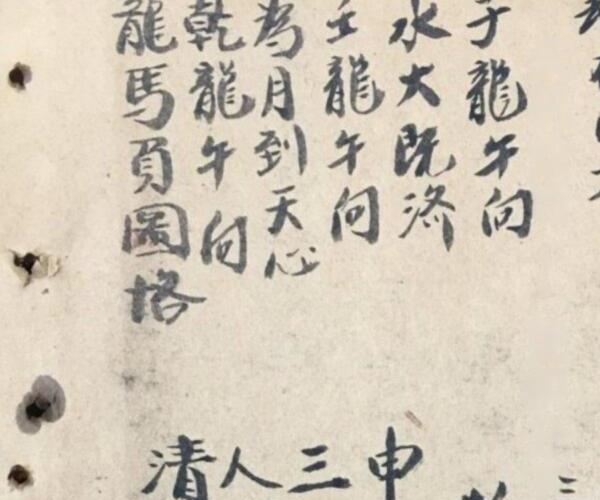 子龍午向
水火既濟
壬龍午向
為月到天心
乾龍午向
龍馬負圖格
申
三
人
清